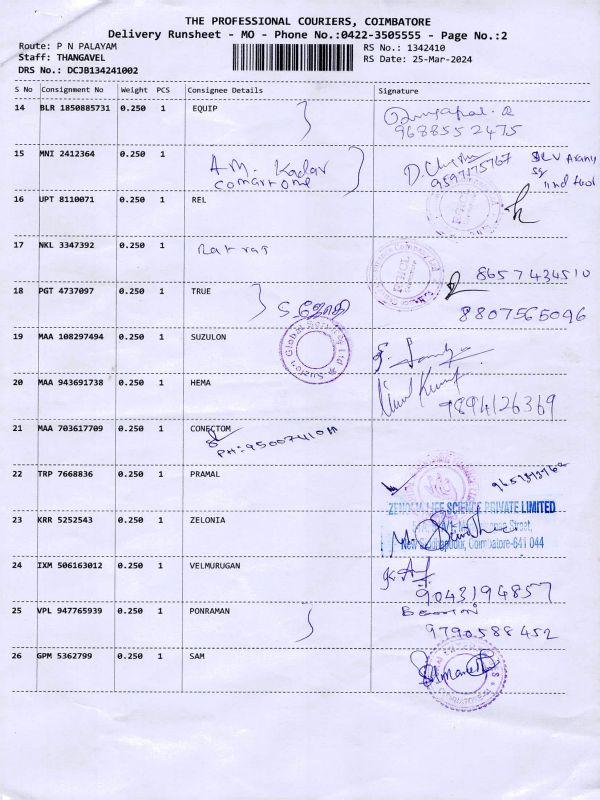 THE PROFESSIONAL COURIERS, COIMBATORE
Delivery Runsheet - MO - Phone No.:0422-3505555 - Page No.:2
Route: P N PALAYAM
RS No.: 1342410
Staff: THANGAVEL
RS Date: 25-Mar-2024
DRS No.: DCJB134241002
S No Consignment No Weight PCS Consignee Details Signature
14 BLR 1850885731 0.250 1 EQUIP
9688552475
15 MNI 2412364 0.250 1 A.M. Kadar
comartone
9597175767
16 UPT 8110071 0.250 1 REL
17 NKL 3347392 0.250 1
8657434510
18 PGT 4737097 0.250 1 TRUE
8807565096
19 MAA 108297494 0.250 1 SUZULON
Suzlon Global Services Ltd
20 MAA 943691738 0.250 1 HEMA
9894126369
21 MAA 703617709 0.250 1 CONECTOM
22 TRP 7668836 0.250 1 PRAMAL
LIFE SCIENCE PRIVATE LIMITED
23 KRR 5252543 0.250 1 ZELONIA
Street,
Coimbatore-641 044
24 IXM 506163012 0.250 1 VELMURUGAN
9043194857
25 VPL 947765939 0.250 1 PONRAMAN
9790588452
26 GPM 5362799 0.250 1 SAM